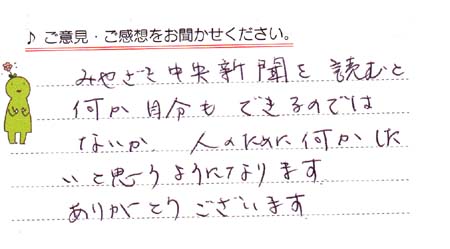 ♪ ご意見・ご感想をお聞かせください。
みやざき中央新聞を読むと
何か自分もできるのでは
ないか、人のために何かした
いと思うようになります
ありがとうございます